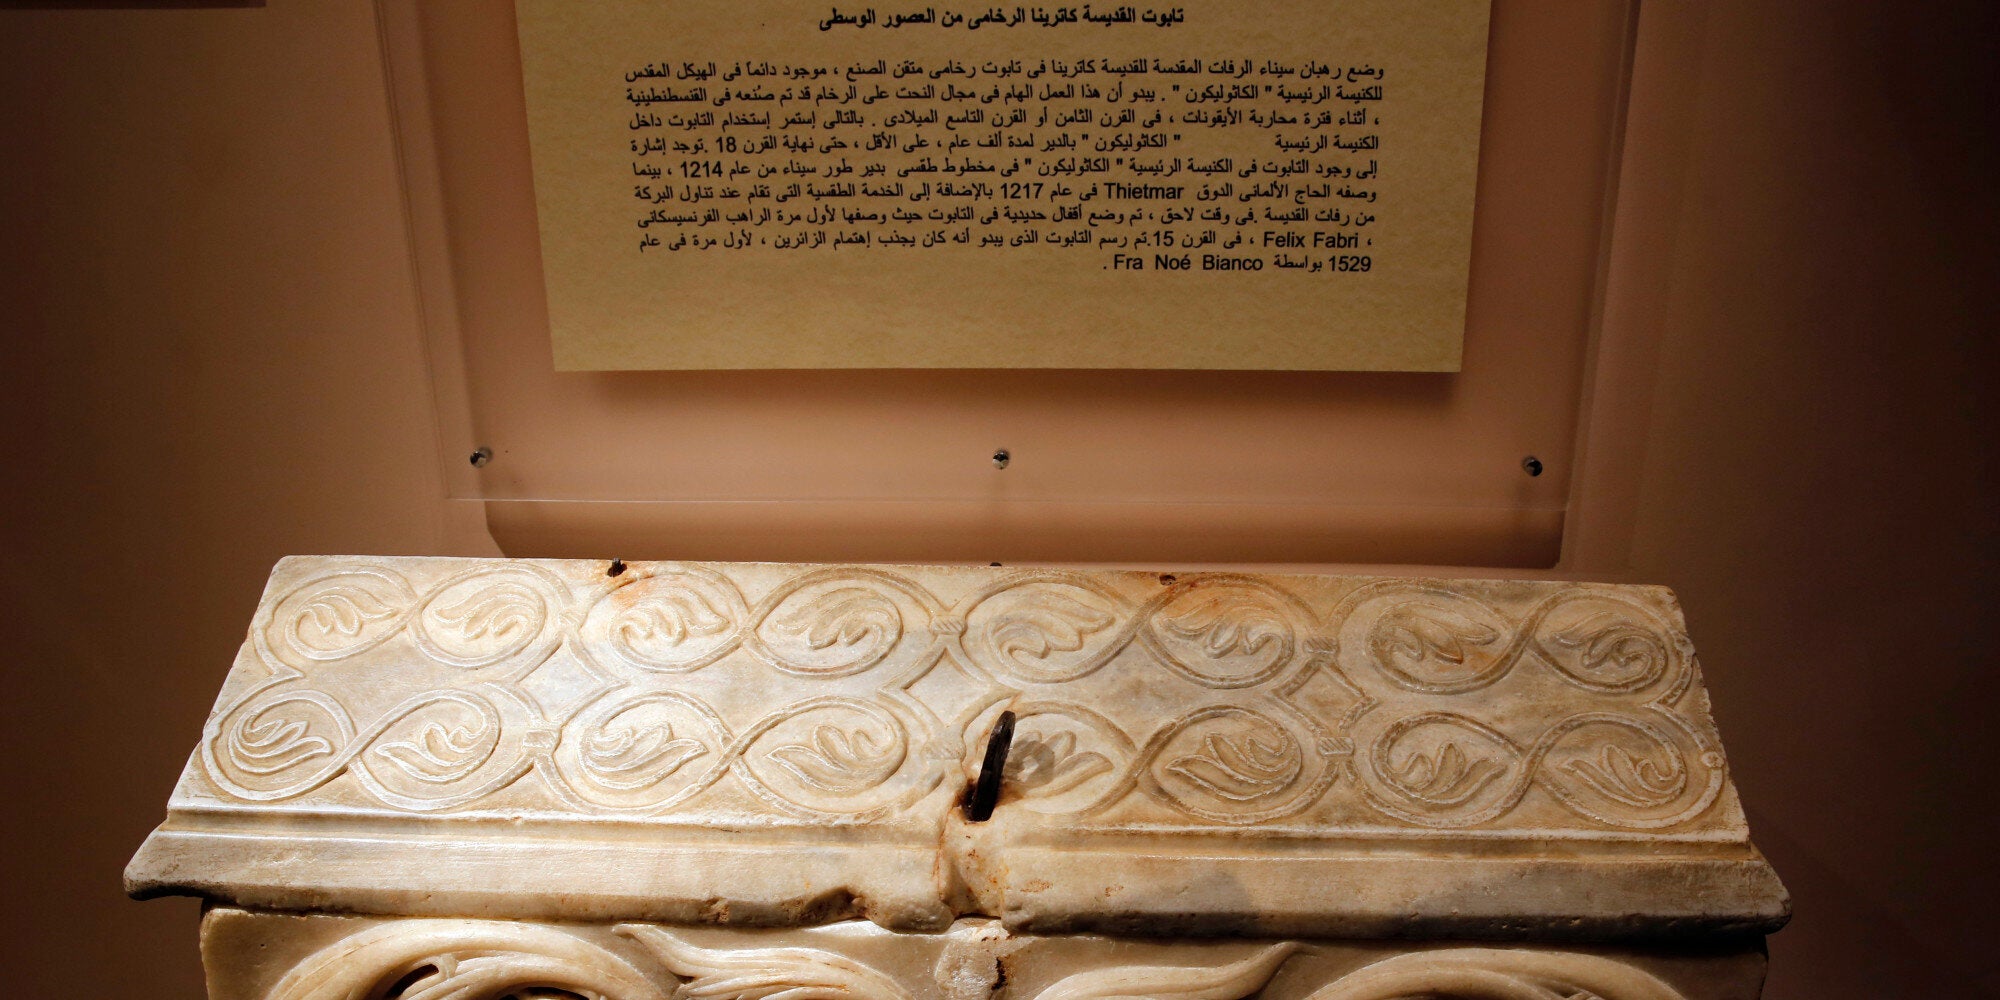 تابوت القديسة كاترينا الرخامى من العصور الوسطى
وضع رهبان سيناء الرفات المقدسة للقديسة كاترينا فى تابوت رخامى متقن الصنع ، موجود دائماً فى الهيكل المقدس
للكنيسة الرئيسية " الكاثوليكون " . يبدو أن هذا العمل الهام فى مجال النحت على الرخام قد تم صُنعه فى القنسطنطينية
، أثناء فترة محاربة الأيقونات ، فى القرن الثامن أو القرن التاسع الميلادى . بالتالى إستمر إستخدام التابوت داخل
الكنيسة الرئيسية " الكاثوليكون " بالدير لمدة ألف عام ، على الأقل ، حتى نهاية القرن 18 .توجد إشارة
إلى وجود التابوت فى الكنيسة الرئيسية " الكاثوليكون " فى مخطوط طقسى بدير طور سيناء من عام 1214 ، بينما
وصفه الحاج الألمانى الدوق Thietmar فى عام 1217 بالإضافة إلى الخدمة الطقسية التى تقام عند تناول البركة
من رفات القديسة .فى وقت لاحق ، تم وضع أقفال حديدية فى التابوت حيث وصفها لأول مرة الراهب الفرنسيسكانى
، Felix Fabri ، فى القرن 15.تم رسم التابوت الذى يبدو أنه كان يجذب إهتمام الزائرين ، لأول مرة فى عام
1529 بواسطة Fra Noé Bianco .